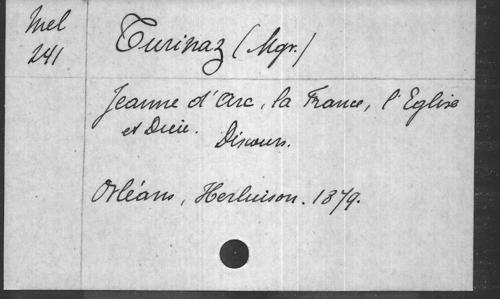 Mel
241
Turinaz (Mgr.)
Jeanne d'Arc, la France, l'Eglise
et Dieu. Discours.
Orléans, Herluison. 1879.